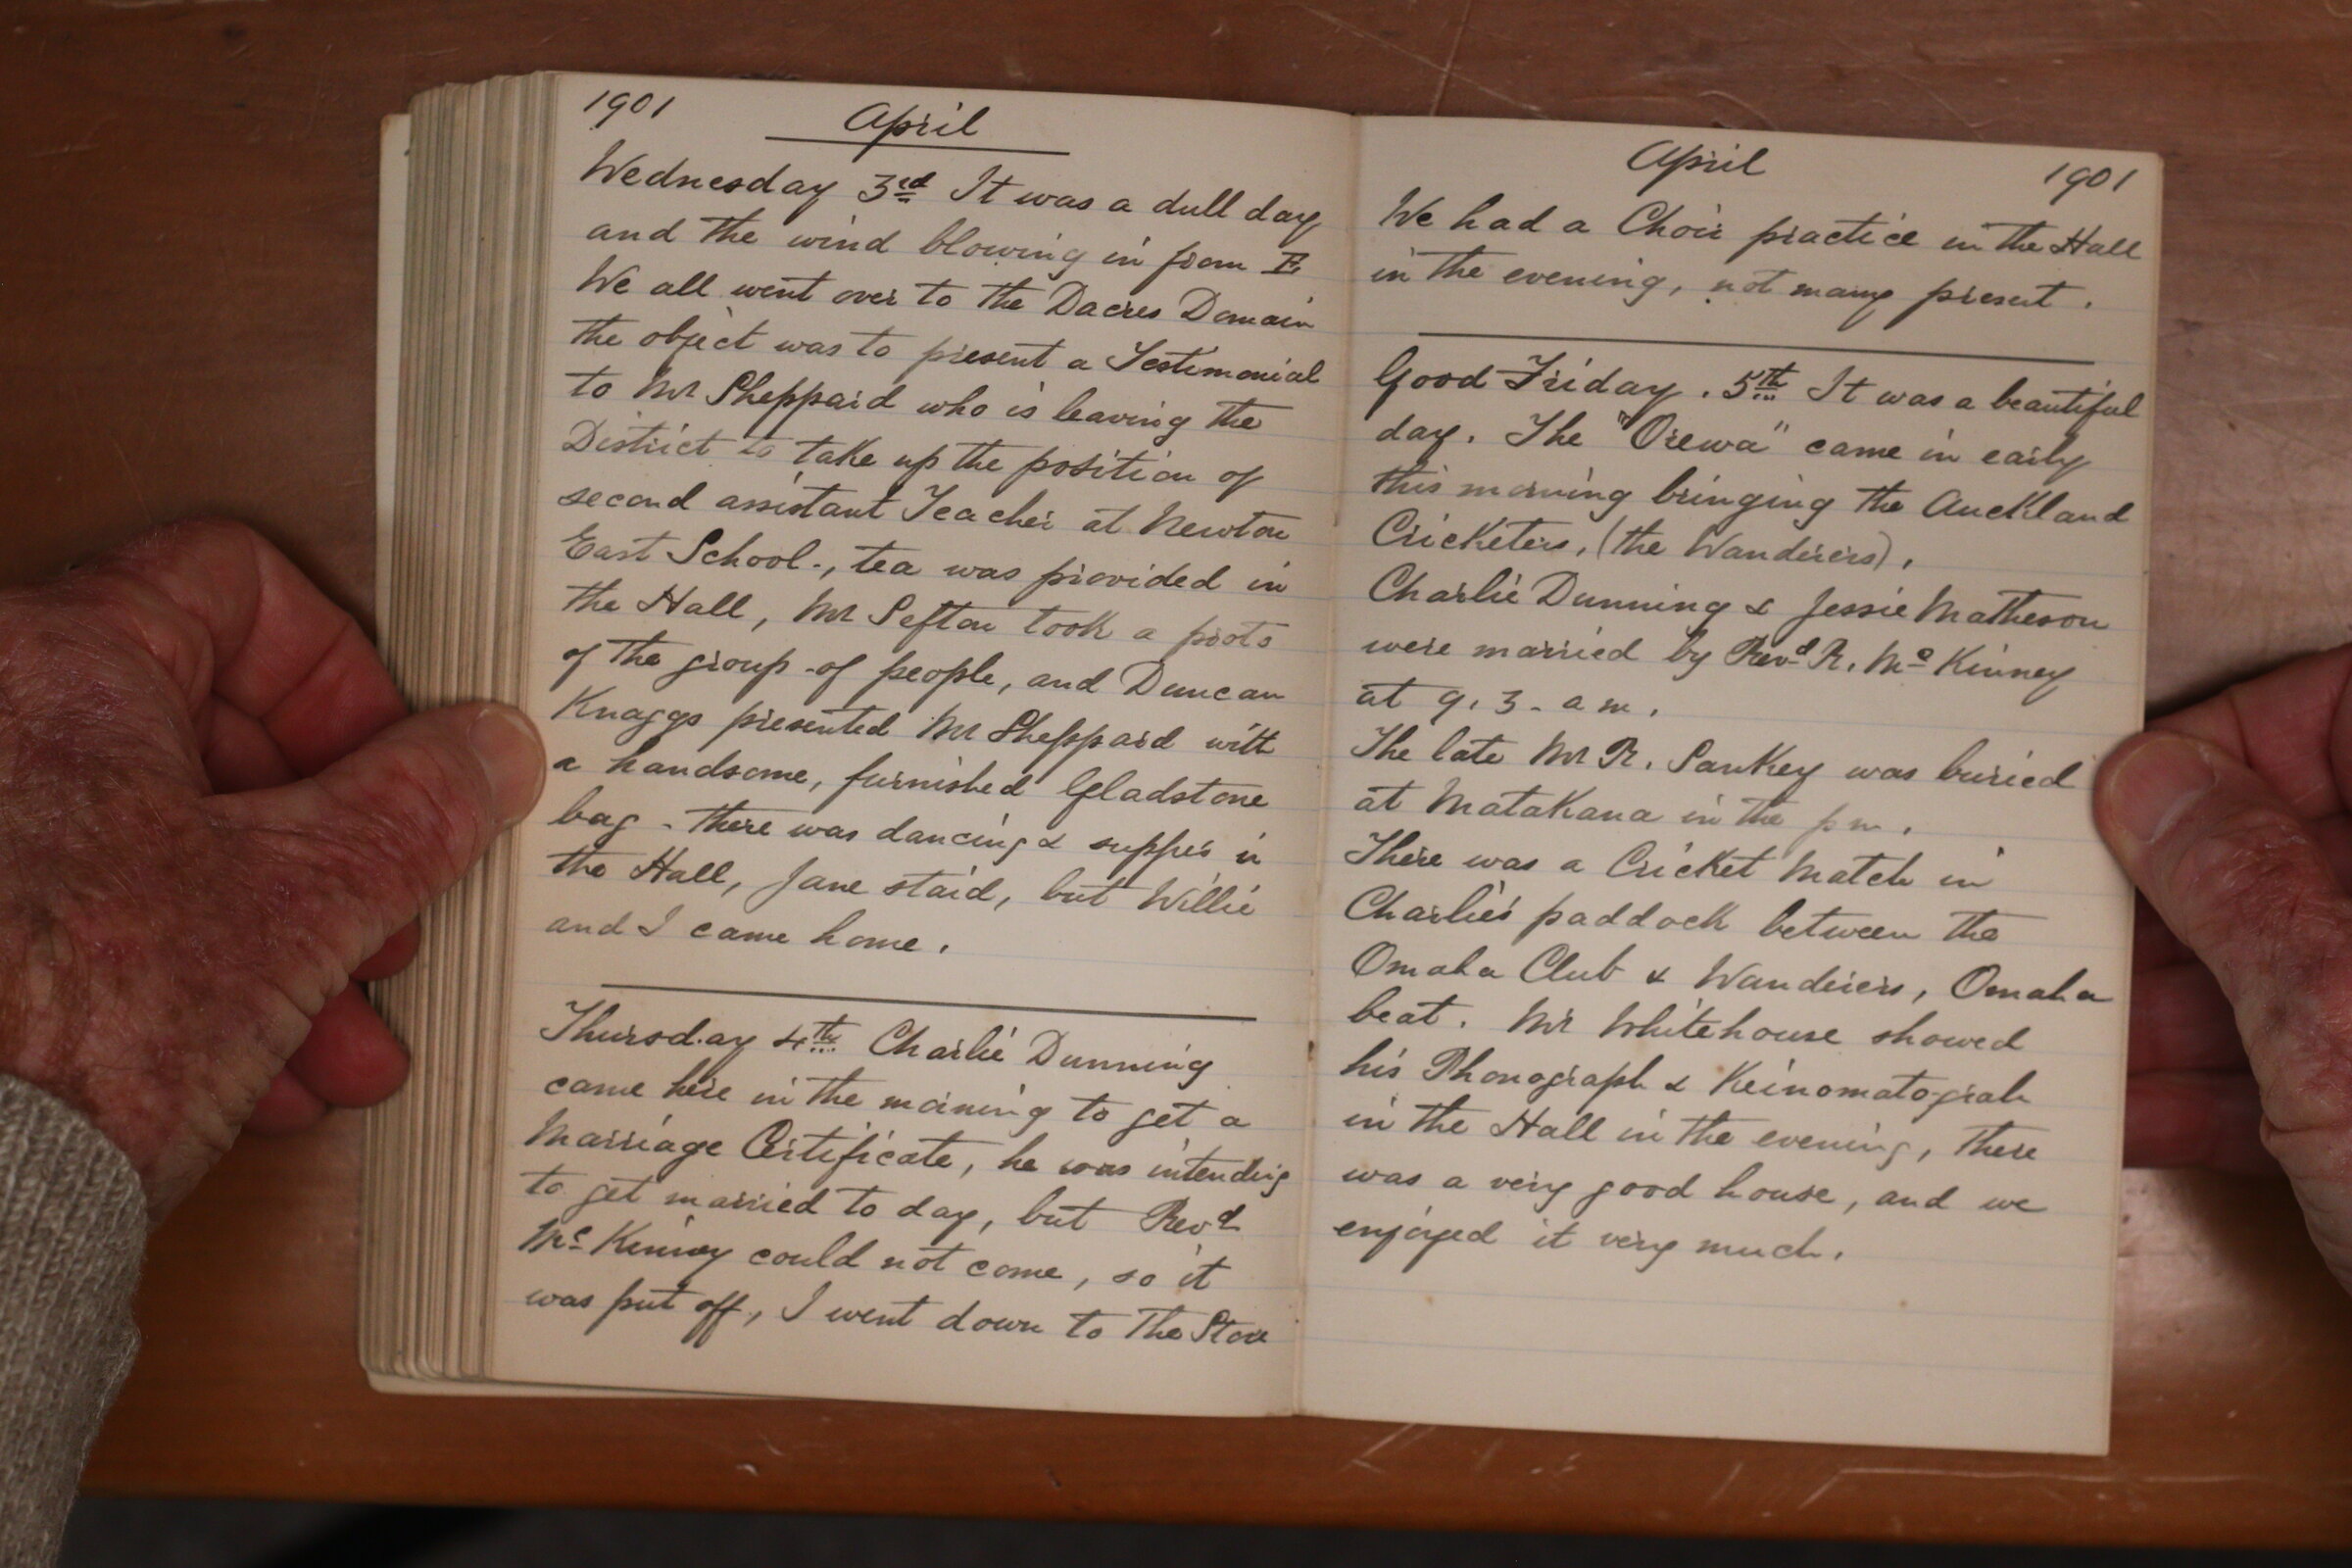 1901 April
Wednesday 3rd It was a dull day
and the wind blowing in from E.
We all went over to the Dacres Domain
the object was to present a Testimonial
to Mr Sheppard who is leaving the
District to take up the position of
second assistant Teacher at Newton
East School., tea was provided in
the Hall, Mr Sefton took a
of the group of people, and Duncan
Knaggs presented Mr Sheppard with
a handsome, furnished Gladstone
bag - there was dancing & supper in
the Hall, Jane staid, but Willie
and I came home.
Thursday 4th Charlie Dunning
came here in the morning to get a
Marriage Certificate, he was intending
to get married to day, but Revd
Mc Kinney could not come, so it
was put off, I went down to The Store
April 1901
We had a Choir practice in the Hall
in the evening, not many present.
Good Friday. 5th It was a beautiful
day. The "Orewa" came in early
this morning bringing the Auckland
Cricketers, (the Wanderers).
Charlie Dunning & Jessie Matheson
were married by Revd R. Mc Kinney
at 9.3 - a m.
The late Mr R. Sankey was buried
at Matakana in the p m.
There was a Cricket Match in
Charlie's paddock between the
Omaha Club & Wanderers, Omaha
beat. Mr Whitehouse showed
his Phonograph & Keinomatograh
in the Hall in the evening, There
was a very good house, and we
enjoyed it very much.